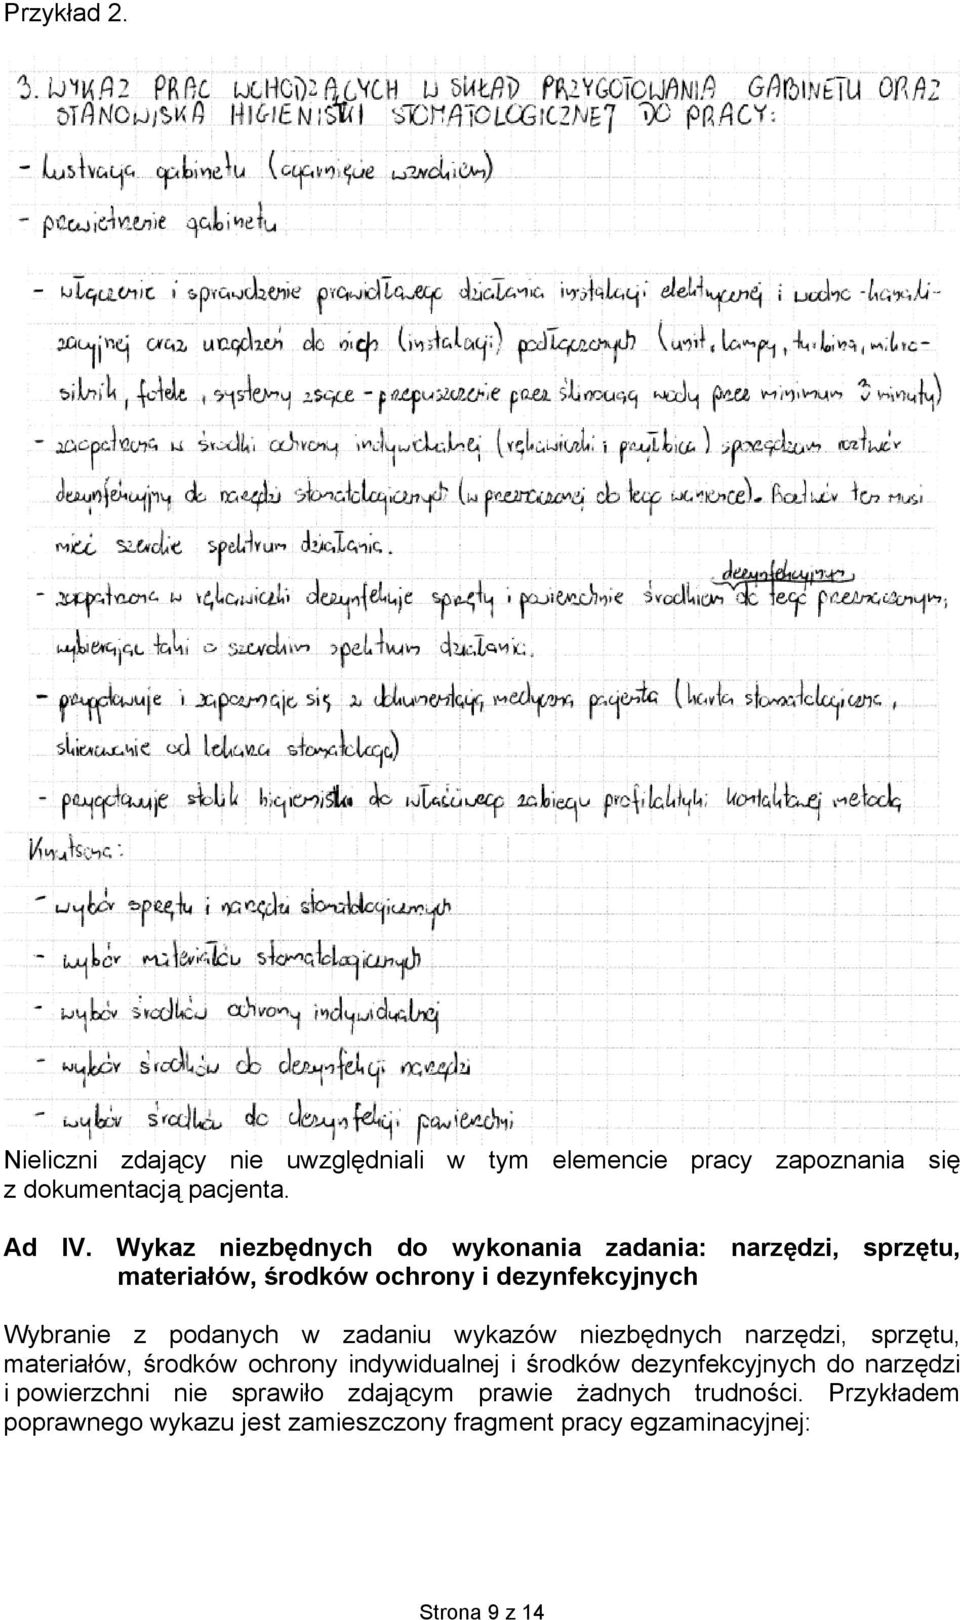 Przykład 2.
3. WYKAZ PRAC WCHODZĄCYCH W SKŁAD PRZYGOTOWANIA GABINETU ORAZ
STANOWISKA HIGIENISTKI STOMATOLOGICZNEJ DO PRACY:
- lustracja gabinetu (ogarnięcie wzrokiem)
- przewietrzenie gabinetu
- włączenie i sprawdzenie prawidłowego działania instalacji elektrycznej i wodno-kanali-
zacyjnej oraz urządzeń do nich (instalacji) podłączonych (unit, lampy, turbina, mikro-
silnik, fotele, systemy ssące - przepuszczenie przez ślinociąg wody przez minimum 3 minuty)
- zaopatrzona w środki ochrony indywidualnej (rękawiczki i przyłbica) sporządzam roztwór
dezynfekcyjny do narzędzi stomatologicznych (w przeznaczonej do tego wanience). Roztwór ten musi
mieć szerokie spektrum działania.
- zaopatrzona w rękawiczki dezynfekuje sprzęty i powierzchnie środkiem dezynfekcyjnym do tego przeznaczonym,
wybierając taki o szerokim spektrum działania.
- przygotowuje i zapoznaje się z dokumentacją medyczną pacjenta (karta stomatologiczna,
skierowanie od lekarza stomatologa)
- przygotowuje stolik higienistki do właściwego zabiegu profilaktyki kontaktowej metodą
Knutsona:
- wybór sprzętu i narzędzi stomatologicznych
- wybór materiałów stomatologicznych
- wybór środków ochrony indywidualnej
- wybór środków do dezynfekcji narzędzi
- wybór środków do dezynfekcji powierzchni
Nieliczni zdający nie uwzględniali w tym elemencie pracy zapoznania się
z dokumentacją pacjenta.
Ad IV. Wykaz niezbędnych do wykonania zadania: narzędzi, sprzętu,
materiałów, środków ochrony i dezynfekcyjnych
Wybranie z podanych w zadaniu wykazów niezbędnych narzędzi, sprzętu,
materiałów, środków ochrony indywidualnej i środków dezynfekcyjnych do narzędzi
i powierzchni nie sprawiło zdającym prawie żadnych trudności. Przykładem
poprawnego wykazu jest zamieszczony fragment pracy egzaminacyjnej:
Strona 9 z 14